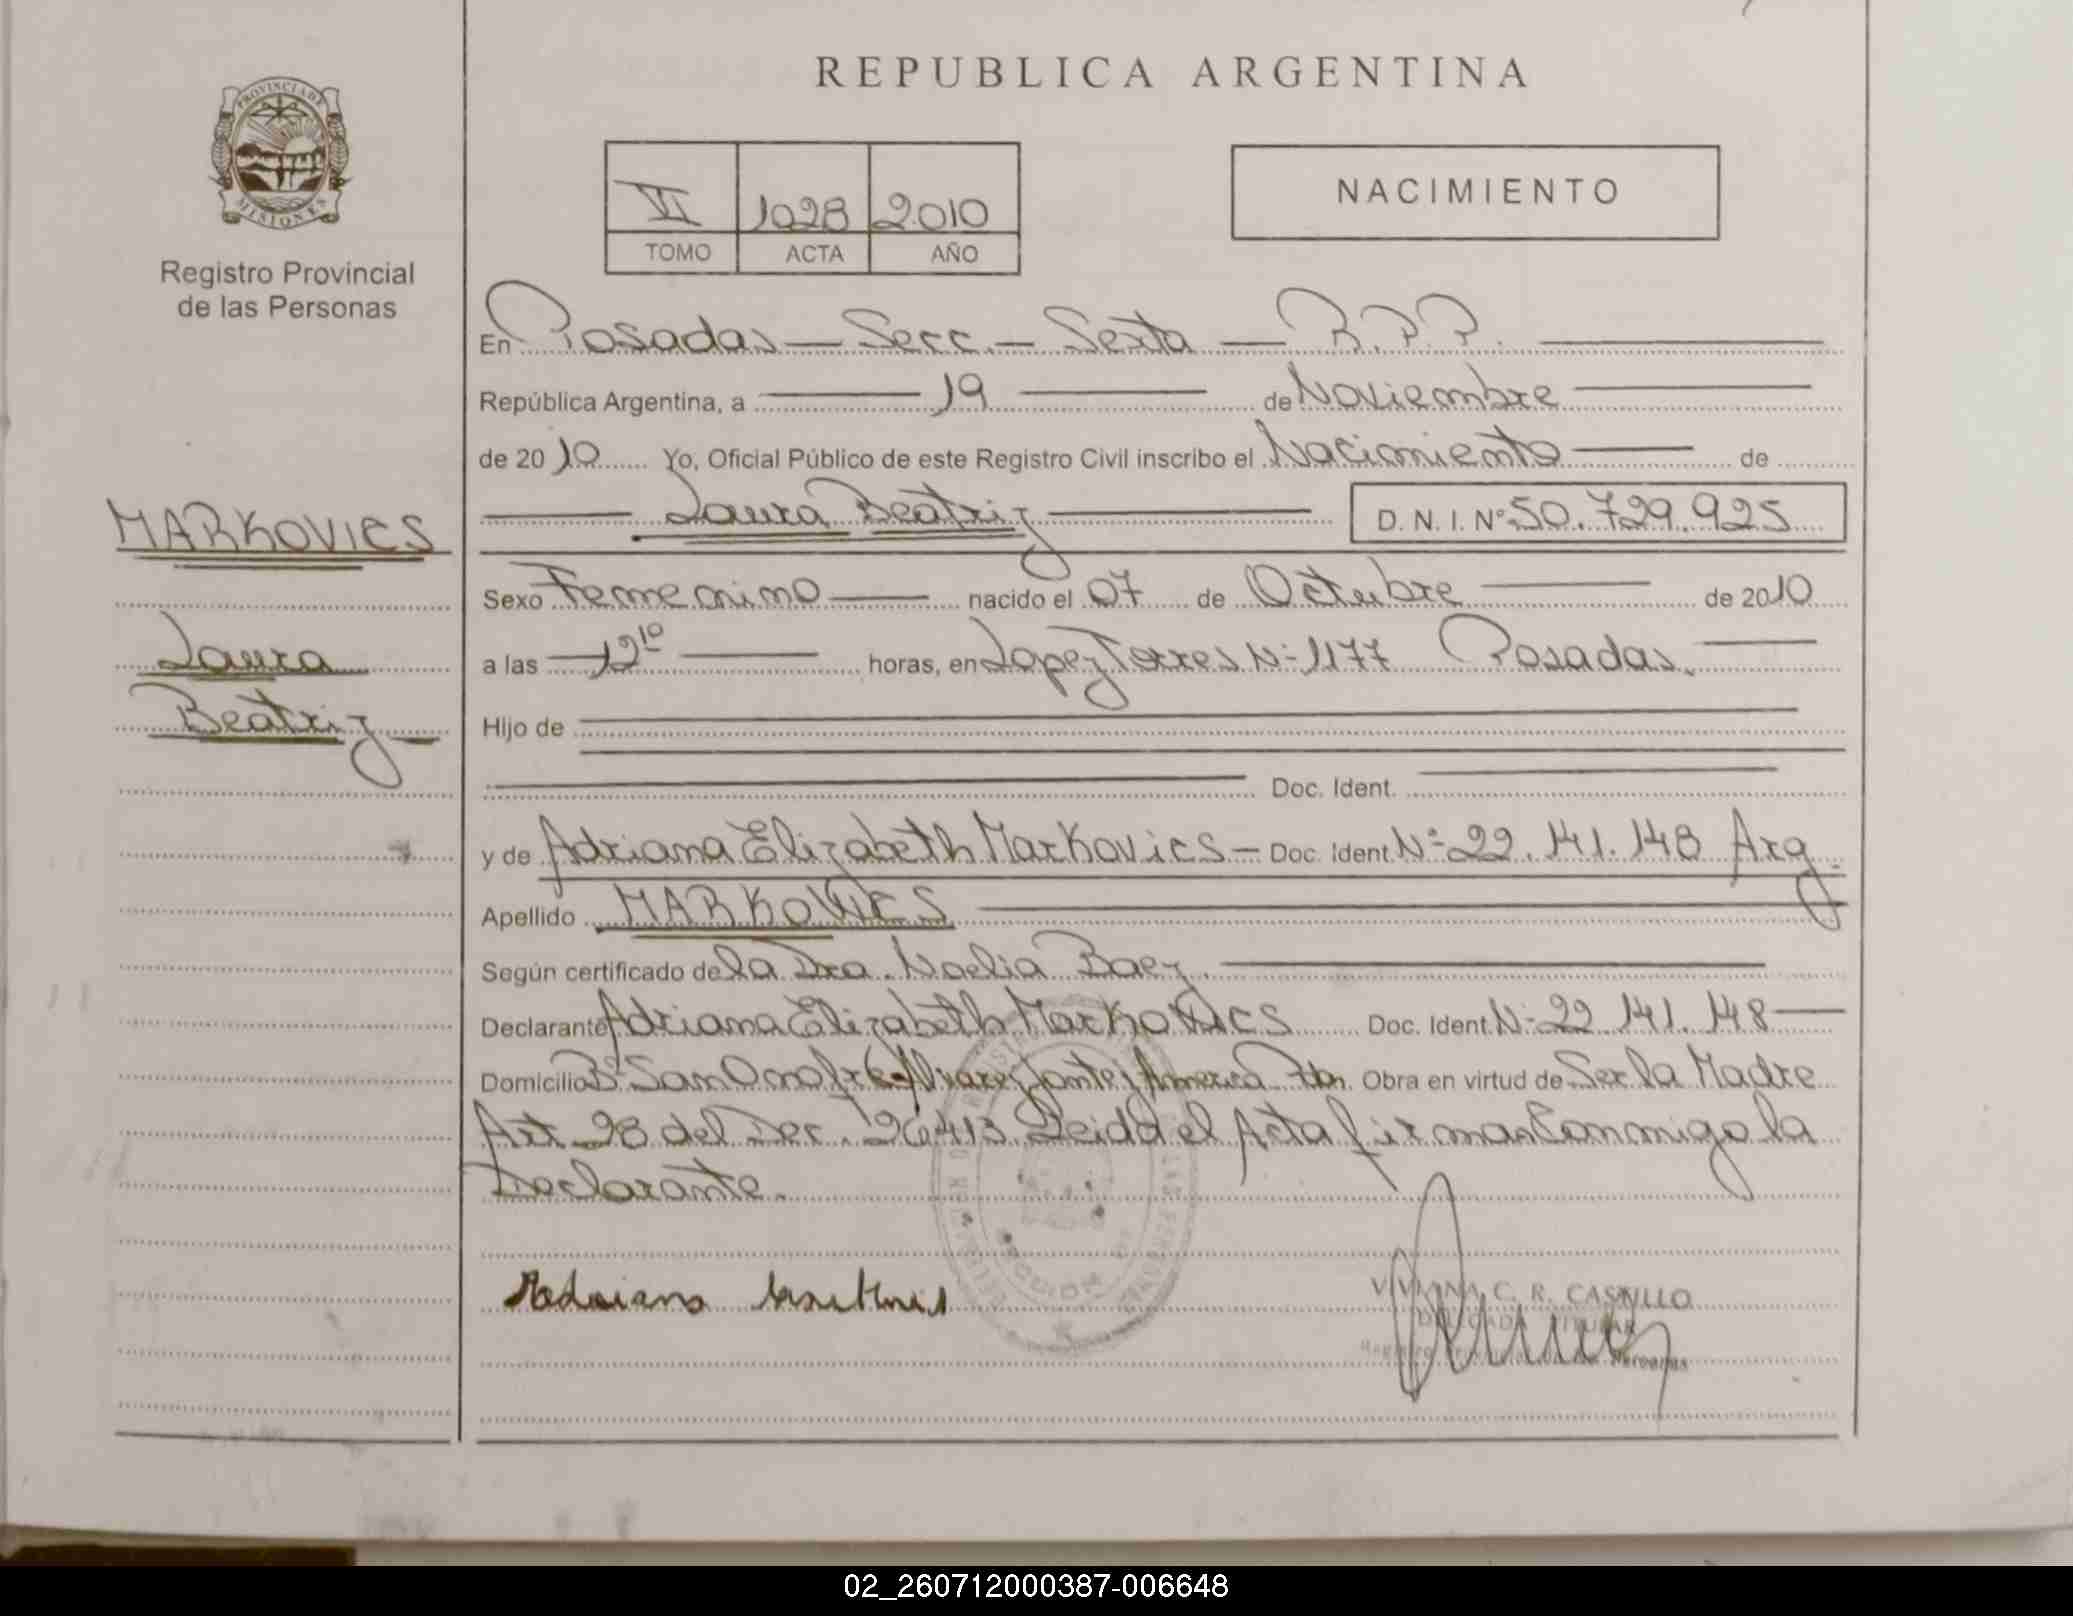 REPUBLICA ARGENTINA
PROVINCIA DE MISIONES
Registro Provincial
de las Personas
VI 1028 2010
TOMO ACTA AÑO
NACIMIENTO
En Posadas - Secc. - Sexta - R.P.P.
República Argentina, a 19 de Noviembre
de 2010 Yo, Oficial Público de este Registro Civil inscribo el Nacimiento de
Laura Beatriz D.N.I. Nº 50.729.925
MARKOVICS
Laura
Beatriz
Sexo Femenino nacido el 07 de Octubre de 2010
a las 12 10 horas, en Lopez Torres Nº 1177 Posadas.
Hijo de
Doc. Ident.
y de Adriana Elizabeth Markovics - Doc. Ident Nº 22.141.148 Arg.
Apellido MARKOVICS
Según certificado de la Dra. Noelia Baez
Declarante Adriana Elizabeth Markovics Doc. Ident. Nº 22.141.148
Domicilio Bº San Onofre Alvarez Jonte y America Obra en virtud de Ser la Madre
Art 28 del Dec. 26413 Leida el Acta firman Conmigo la
Declarante.
Adriana
VIVIANA C. R. CASTILLO
DELEGADA TITULAR
02_260712000387-006648